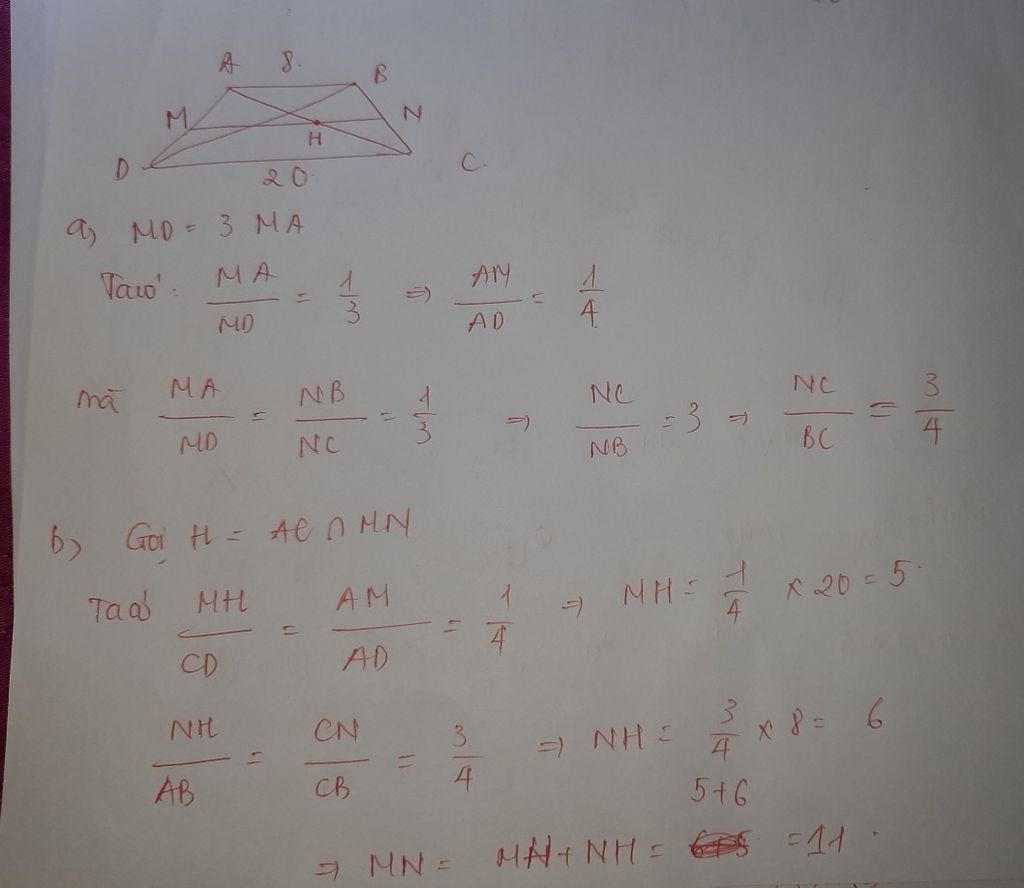 A 8. B
M N
H
D C.
20
a, MD = 3 MA
Ta có: MA/MD = 1/3 => AM/AD = 1/4
mà MA/MD = NB/NC = 1/3 => NC/NB = 3 => NC/BC = 3/4
b, Gọi H = AC ∩ MN
Ta có MH/CD = AM/AD = 1/4 => MH = 1/4 x 20 = 5.
NH/AB = CN/CB = 3/4 => NH = 3/4 x 8 = 6
5+6
=> MN = MH + NH = = 11.